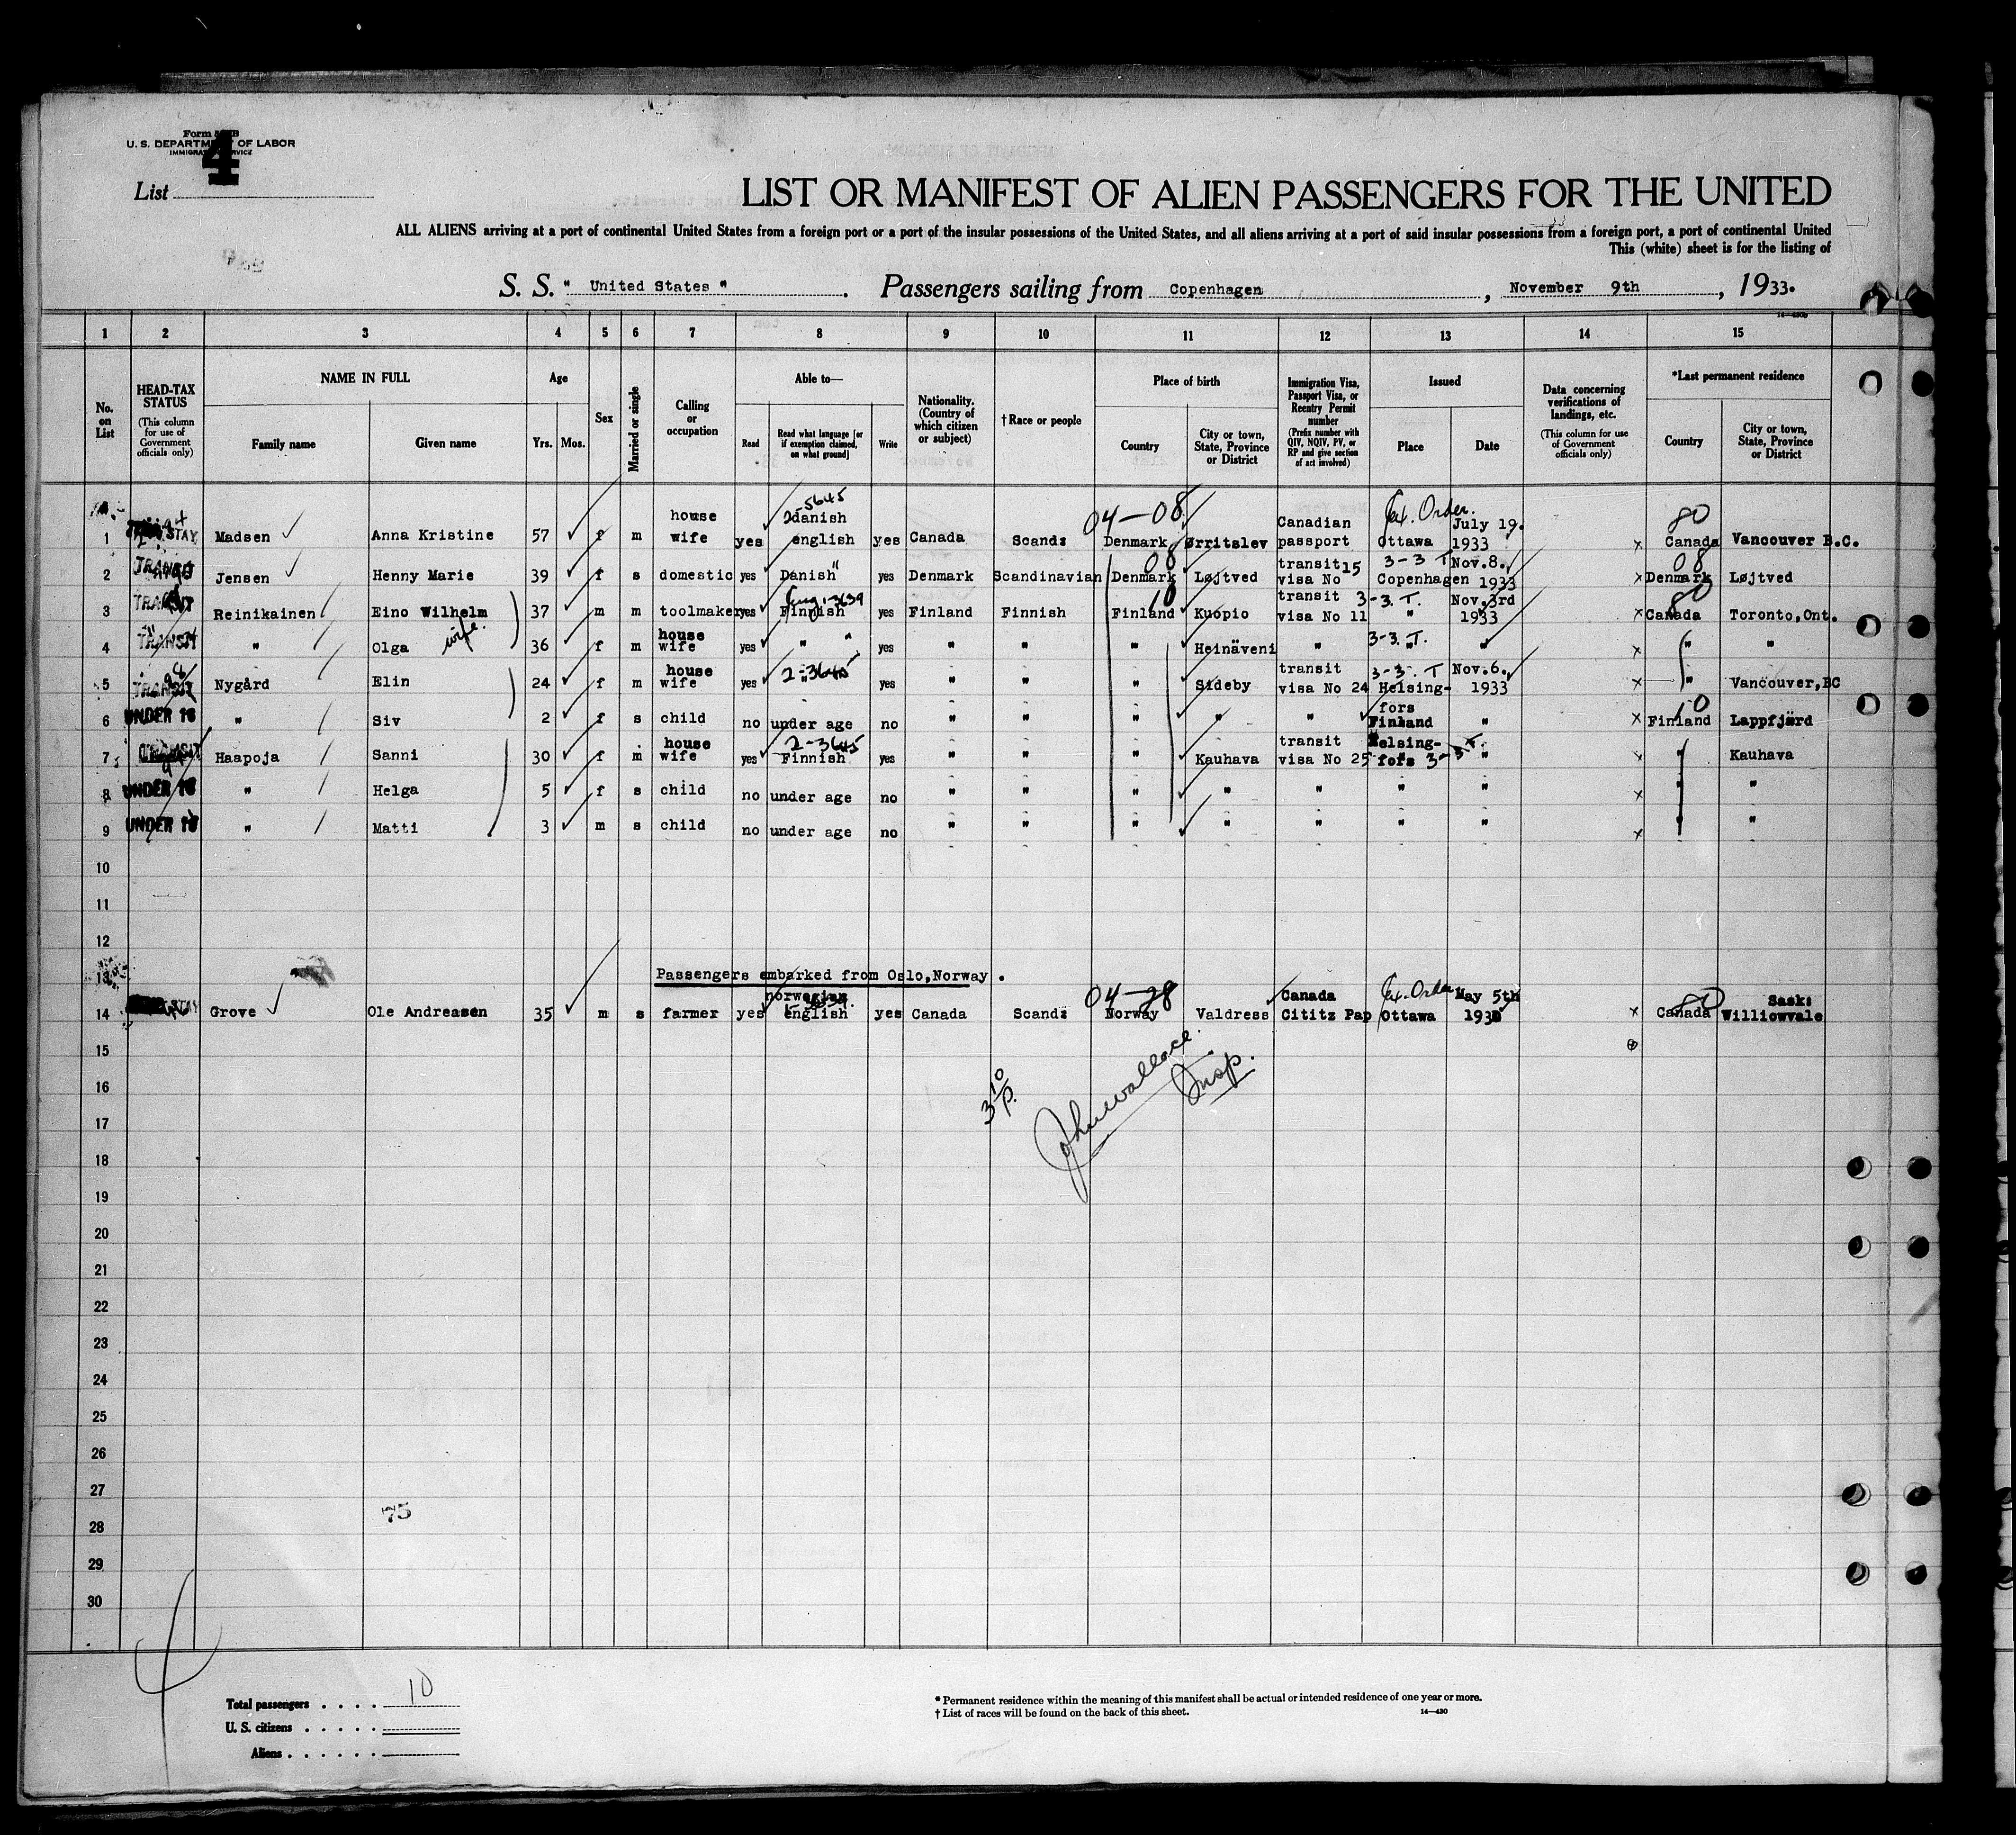 Form
U. S. DEPARTMENT OF LABOR
IMMIGRATION SERVICE
4
List
LIST OR MANIFEST OF ALIEN PASSENGERS FOR THE UNITED
ALL ALIENS arriving at a port of continental United States from a foreign port or a port of the insular possessions of the United States, and all aliens arriving at a port of said insular possessions from a foreign port, a port of continental United
This (white) sheet is for the listing of
S. S. " United States " . Passengers sailing from Copenhagen , November 9th , 1933.
1 2 3 4 5 6 7 8 9 10 11 12 13 14 15
No. on List
HEAD-TAX STATUS (This column for use of Government officials only)
NAME IN FULL Family name Given name
Age Yrs. Mos.
Sex
Married or single
Calling or occupation
Able to— Read Read what language [or if exemption claimed, on what ground] Write
Nationality. (Country of which citizen or subject)
†Race or people
Place of birth Country City or town, State, Province or District
Immigration Visa, Passport Visa, or Reentry Permit number (Prefix number with QIV, NQIV, PV, or RP and give section of act involved)
Issued Place Date
Data concerning verifications of landings, etc. (This column for use of Government officials only)
*Last permanent residence Country City or town, State, Province or District
1 Madsen Anna Kristine 57 f m house wife yes danish english yes Canada Scand: 04-08 Denmark Ørritslev Canadian passport Ex. Order. Ottawa July 19. 1933 x 80 Canada Vancouver B.C.
2 TRANSIT Jensen Henny Marie 39 f s domestic yes Danish yes Denmark Scandinavian 08 Denmark Løjtved transit visa No 15 3-3 T Copenhagen Nov.8. 1933 x 08 Denmark Løjtved
3 TRANSIT Reinikainen Eino Wilhelm 37 m m toolmaker yes Eng 1-3639 Finnish yes Finland Finnish 10 Finland Kuopio transit visa No 11 3-3. T. " Nov.3rd 1933 x 80 Canada Toronto,Ont.
4 TRANSIT " Olga wife. 36 f m house wife yes " " yes " " " Heinäveni 3-3. T. " " x " "
5 TRANSIT Nygård Elin 24 f m house wife yes 2-3645 " yes " " " Sideby transit visa No 24 3-3. T Helsing- fors Nov.6. 1933 x " Vancouver,BC
6 UNDER 16 " Siv 2 f s child no under age no " " " " " Finland " x 10 Finland Lappfjärd
7 TRANSIT Haapoja Sanni 30 f m house wife yes 2-3645 Finnish yes " " " Kauhava transit visa No 25 Helsing- fors 3-3.T. " x " Kauhava
8 UNDER 16 " Helga 5 f s child no under age no " " " " " " " x " "
9 UNDER 16 " Matti 3 m s child no under age no " " " " " " " x " "
10
11
12
13 Passengers embarked from Oslo,Norway .
14 Grove Ole Andreasen 35 m s farmer yes norwegian english yes Canada Scand: 04-28 Norway Valdress Canada Cititz Pap Ex. Order Ottawa May 5th x 80 Canada Sask: Williowvale
15
16
17
18
19
20
21
22
23
24
25
26
27
28
29
30
3 10/P.
John Wallace
Insp.
75
Total passengers . . . . 10
U. S. citizens . . . . .
Aliens . . . . . .
* Permanent residence within the meaning of this manifest shall be actual or intended residence of one year or more.
† List of races will be found on the back of this sheet.
14—430